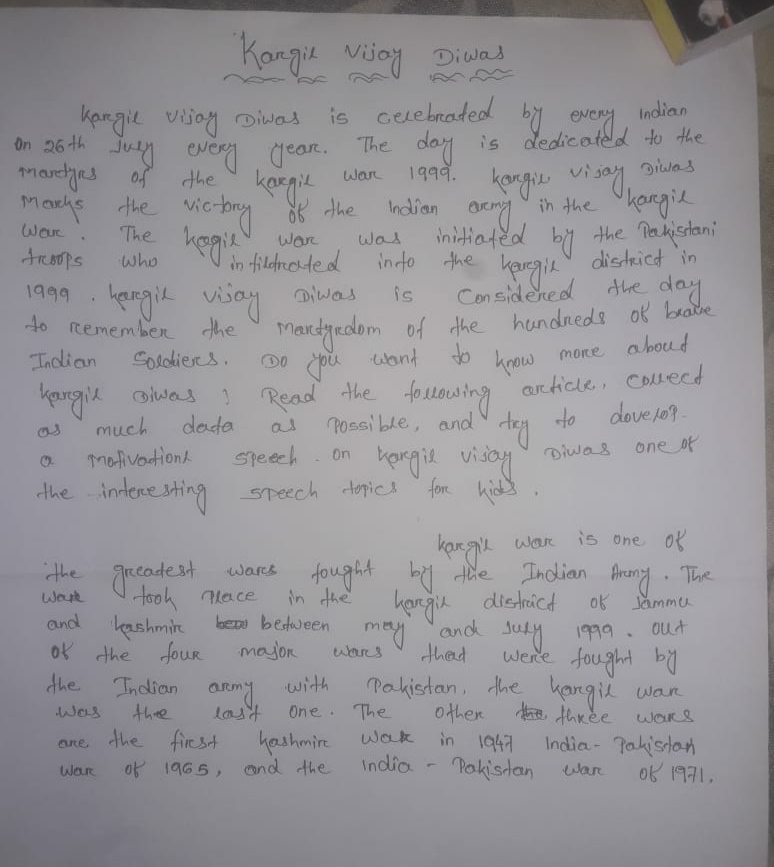 Kargil Vijay Diwas
Kargil Vijay Diwas is celebrated by every Indian
On 26th July every year. The day is dedicated to the
Martyrs of the Kargil war 1999. Kargil Vijay Diwas
Marks the victory of the Indian army in the Kargil
War. The Kagil war was initiated by the Pakistani
troops who infiltrated into the Kargil district in
1999. Kargil Vijay Diwas is Considered the day
to remember the Martyrdom of the hundreds of brave
Indian Soldiers. Do you want to know more about
Kargil Diwas ? Read the following article, Collect
as much data as Possible, and try to dovelop
a Motivationl speech. On Kargil Vijay Diwas one of
the interesting speech topics for kids.
Kargil war is one of
the greatest wars fought by the Indian Army. The
War took Place in the Kargil district of Jammu
and Kashmir between may and July 1999. Out
of the four major wars that were fought by
the Indian army with Pakistan, the Kargil war
was the last one. The other three wars
are the first Kashmir War in 1947 India-Pakistan
War of 1965, and the India-Pakistan war of 1971.